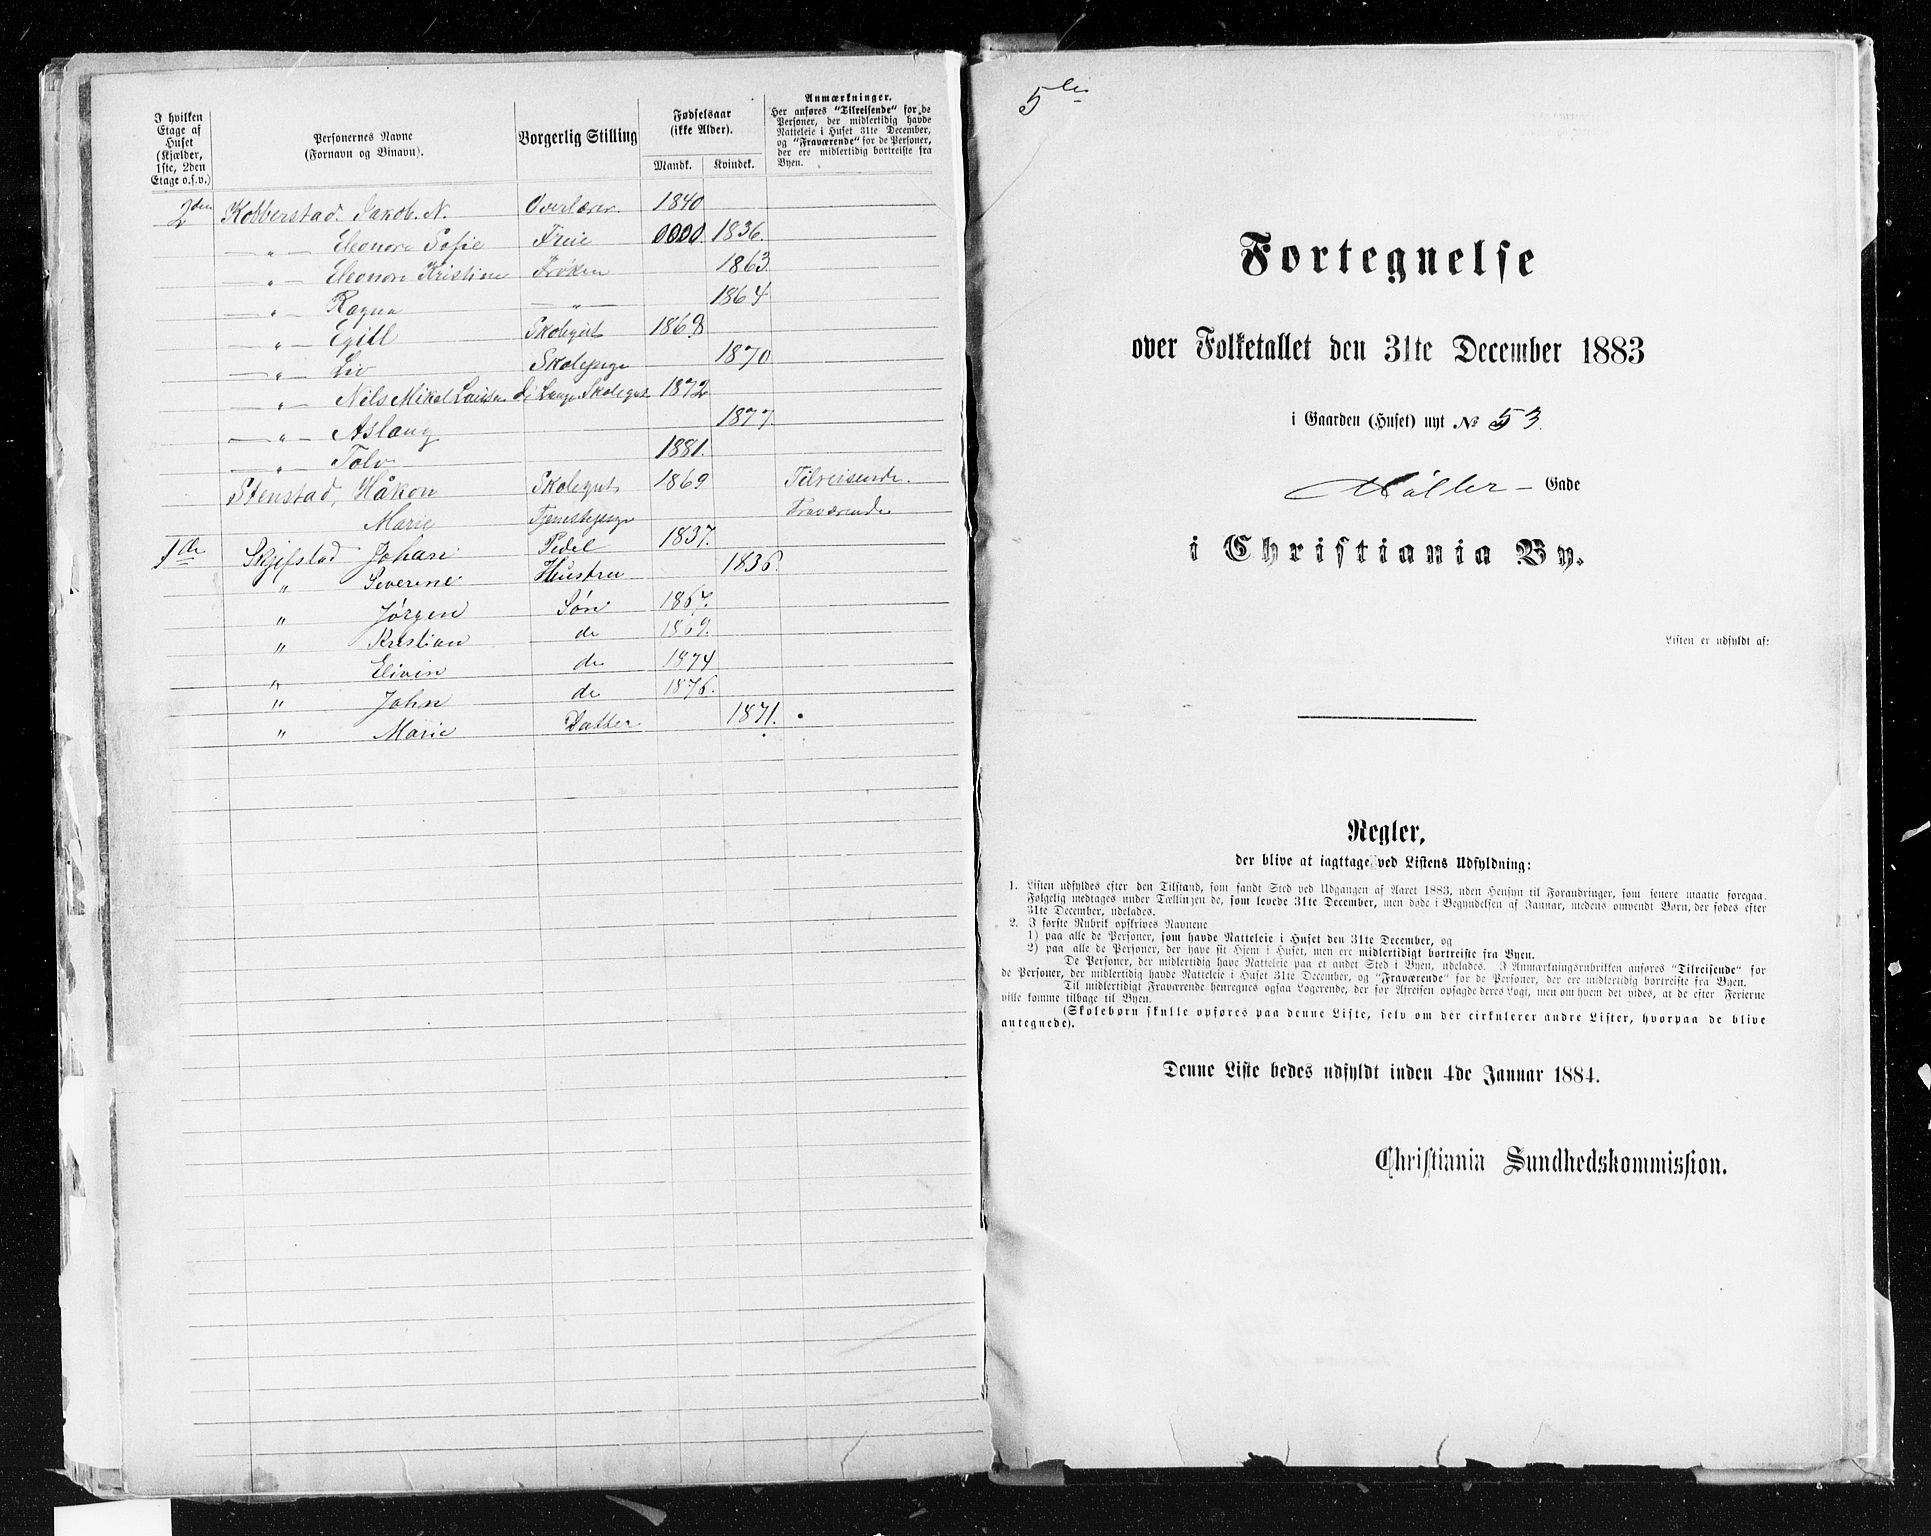 I hvilken
Etage af
Huset
(Kjælder,
1ste, 2den
Etage o.s.v.)
Personernes Navne
(Fornavn og Binavn).
Borgerlig Stilling
Fødselsaar
(ikke Alder).
Mandk. Kvindek.
Anmærkninger.
Her anføres "Tilreisende" for de
Personer, der midlertidig havde
Natteleie i Huset 31te December,
og "Fraværende" for de Personer,
der ere midlertidig bortreiste fra
Byen.
2den Kobberstad. Jakob. N. Overlærer. 1840
— " — Eleonore Sofie Frue 0000. 1836.
— " — Eleonore Kristine Frøken 1863
— " — Ragna — " — 1864
— " — Egill Skolegut 1868
— " — Liv Skolepige 1870
— " — Nils Mikal Skolegut 1872
— " — Aslaug 1877.
— " — Tolv 1881.
Stenstad, Håkon Skolegut 1869 Tilreisende.
Marie Tjenestepige Fraværende
1ste Skjefstad Johan Pedel 1837.
" Severine Hustru 1836.
" Jørgen Søn 1867.
" Kristian do 1869.
" Elivin do 1874
" John do 1876.
" Marie Datter 1871.
5
Fortegnelse
over Folketallet den 31te December 1883
i Gaarden (Huset) nyt № 53.
Møller – Gade
i Christiania By.
Listen er udfyldt af:
Regler,
der blive at iagttage ved Listens Udfyldning:
1. Listen udfyldes efter den Tilstand, som fandt Sted ved Udgangen af Aaret 1883, uden Hensyn til Forandringer, som senere maatte foregaa.
Følgelig medtages under Tællingen de, som levede 31te December, men døde i Begyndelsen af Januar, medens omvendt Børn, der fødes efter
31te December, udelades.
2. I første Rubrik opskrives Navnene
1) paa alle de Personer, som havde Natteleie i Huset den 31te December, og
2) paa alle de Personer, der have sit Hjem i Huset, men ere midlertidigt bortreiste fra Byen.
De Personer, der midlertidig have Natteleie paa et andet Sted i Byen, udelades. I Anmærkningsrubrikken anføres "Tilreisende" for
de Personer, der midlertidig havde Natteleie i Huset 31te December, og "Fraværende" for de Personer, der ere midlertidig bortreiste fra Byen.
Til midlertidigt Fraværende henregnes ogsaa Logerende, der før Afreisen opsagde deres Logi, men om hvem det vides, at de efter Ferierne
ville komme tilbage til Byen.
(Skolebørn skulle opføres paa denne Liste, selv om der cirkulerer andre Lister, hvorpaa de blive
antegnede).
Denne Liste bedes udfyldt inden 4de Januar 1884.
Christiania Sundhedskommission.